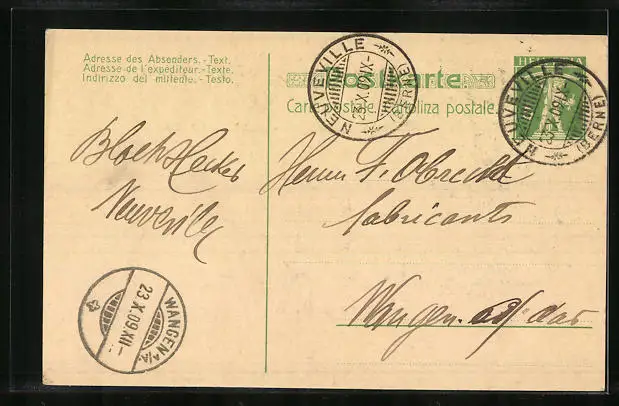 Adresse des Absenders. - Text.
Adresse de l'expéditeur. - Texte.
Indirizzo del mittente. - Testo.
Postkarte
Carte postale. Cartolina postale.
HELVETIA
NEUVEVILLE
23.X.09.IX-
(BERNE)
NEUVEVILLE
(BERNE)
Herrn F. Obrecht
fabricants
Wangen
Neuveville
WANGEN A/A.
23.X.09.XII-